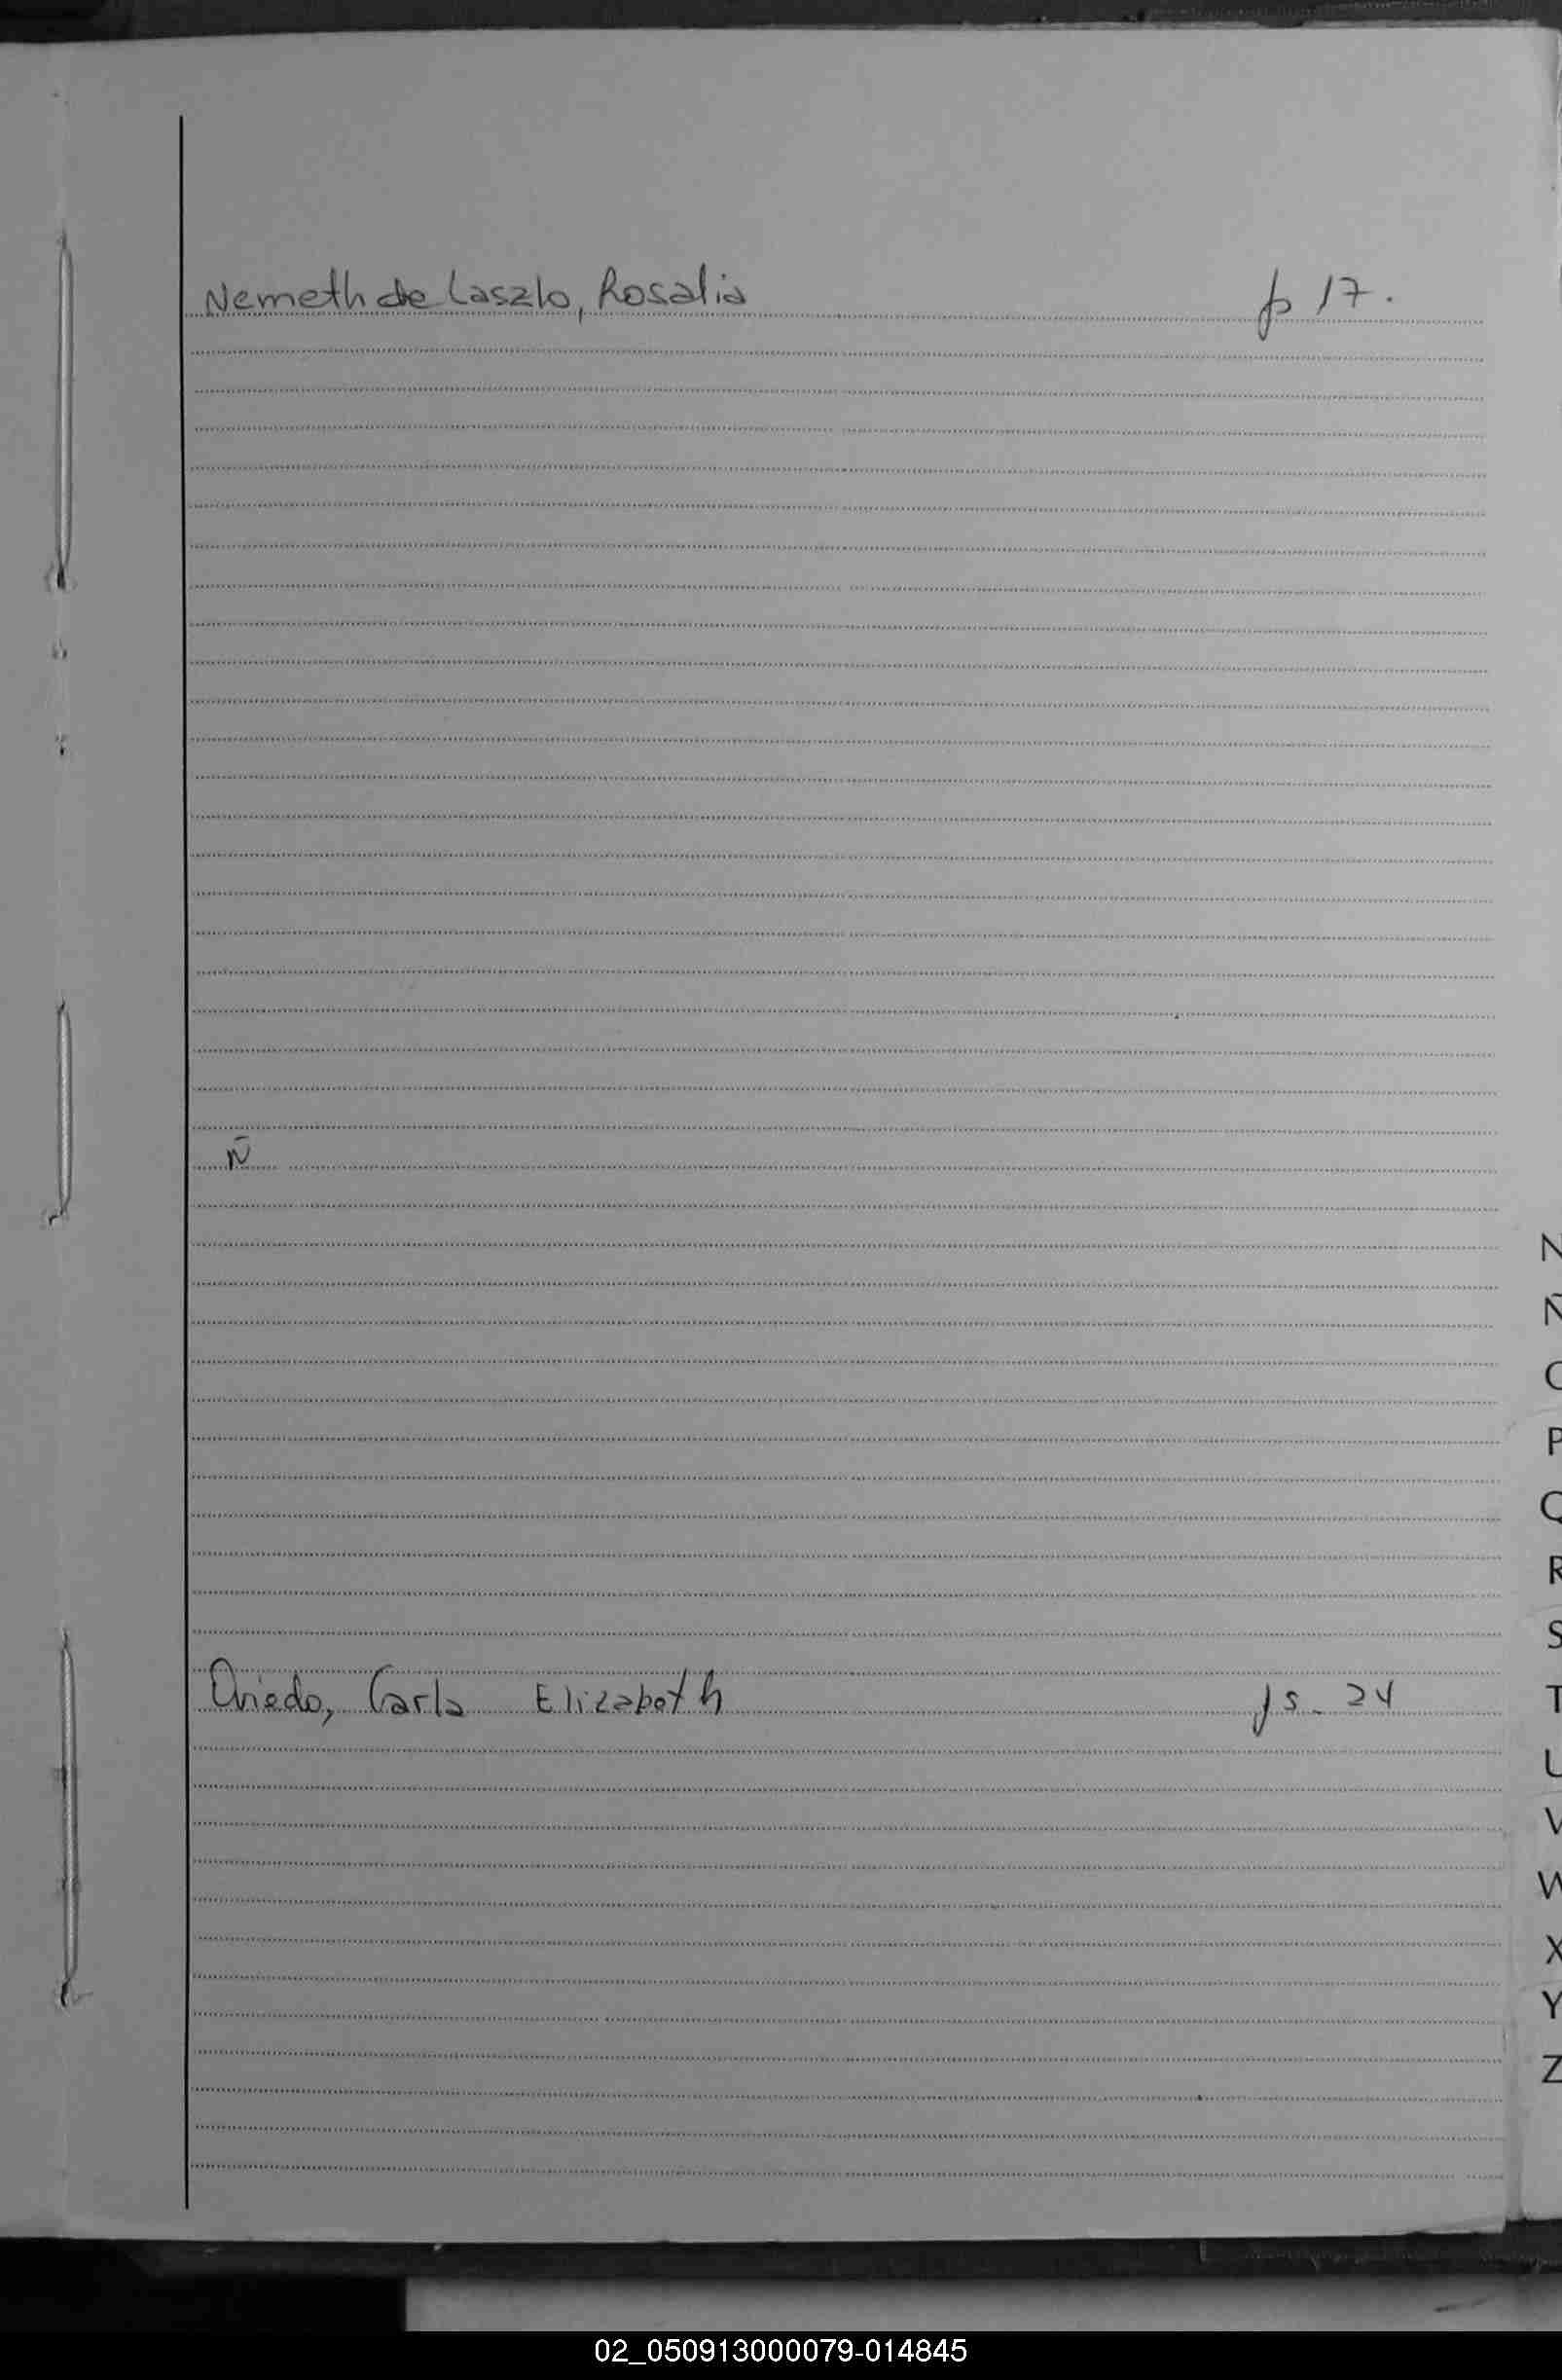 Nemeth de Laszlo, Rosalia fs 17.
Ñ
Oviedo, Carla Elizabeth fs. 24
N
Ñ
O
P
Q
R
S
T
U
V
W
X
Y
Z
02_050913000079-014845